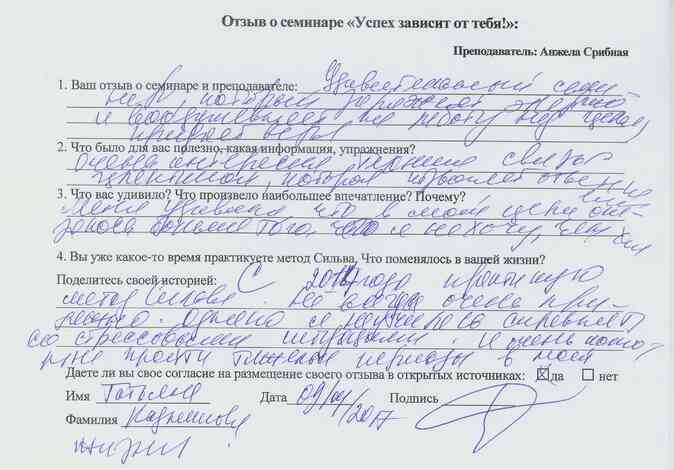 Отзыв о семинаре «Успех зависит от тебя!»:
Преподаватель: Анжела Срибная
1. Ваш отзыв о семинаре и преподавателе: Удивительный семи-
нар, который заряжает энергией
и воодушевляет на работу над целью,
придает веры
2. Что было для вас полезно, какая информация, упражнения?
очень интересная техника связи с
3. Что вас удивило? Что произвело наибольшее впечатление? Почему?
меня удивило что в моей цели ока-
залось больше того, чего я не хочу, чем хочу
4. Вы уже какое-то время практикуете метод Сильва, Что поменялось в вашей жизни?
Поделитесь своей историей: С года практикую
метод Сильва. Не всегда очень при-
лежно. Однако я научилась справляться
со стрессовыми ситуациями. И очень помог
мне пройти тяжелые периоды в моей
Даете ли вы свое согласие на размещение своего отзыва в открытых источниках: да нет
Имя Татьяна Дата 09/04/2017 Подпись
Фамилия Кузнецова
жизни!